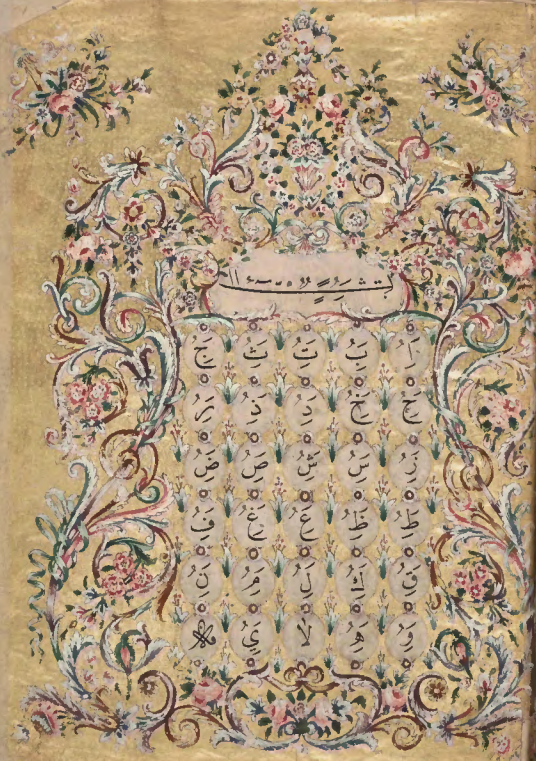 ا ب ت ث ج
ح خ د ذ ر
ز س ش ص ض
ط ظ ع غ ف
ق ك ل م ن
و ه لا ي